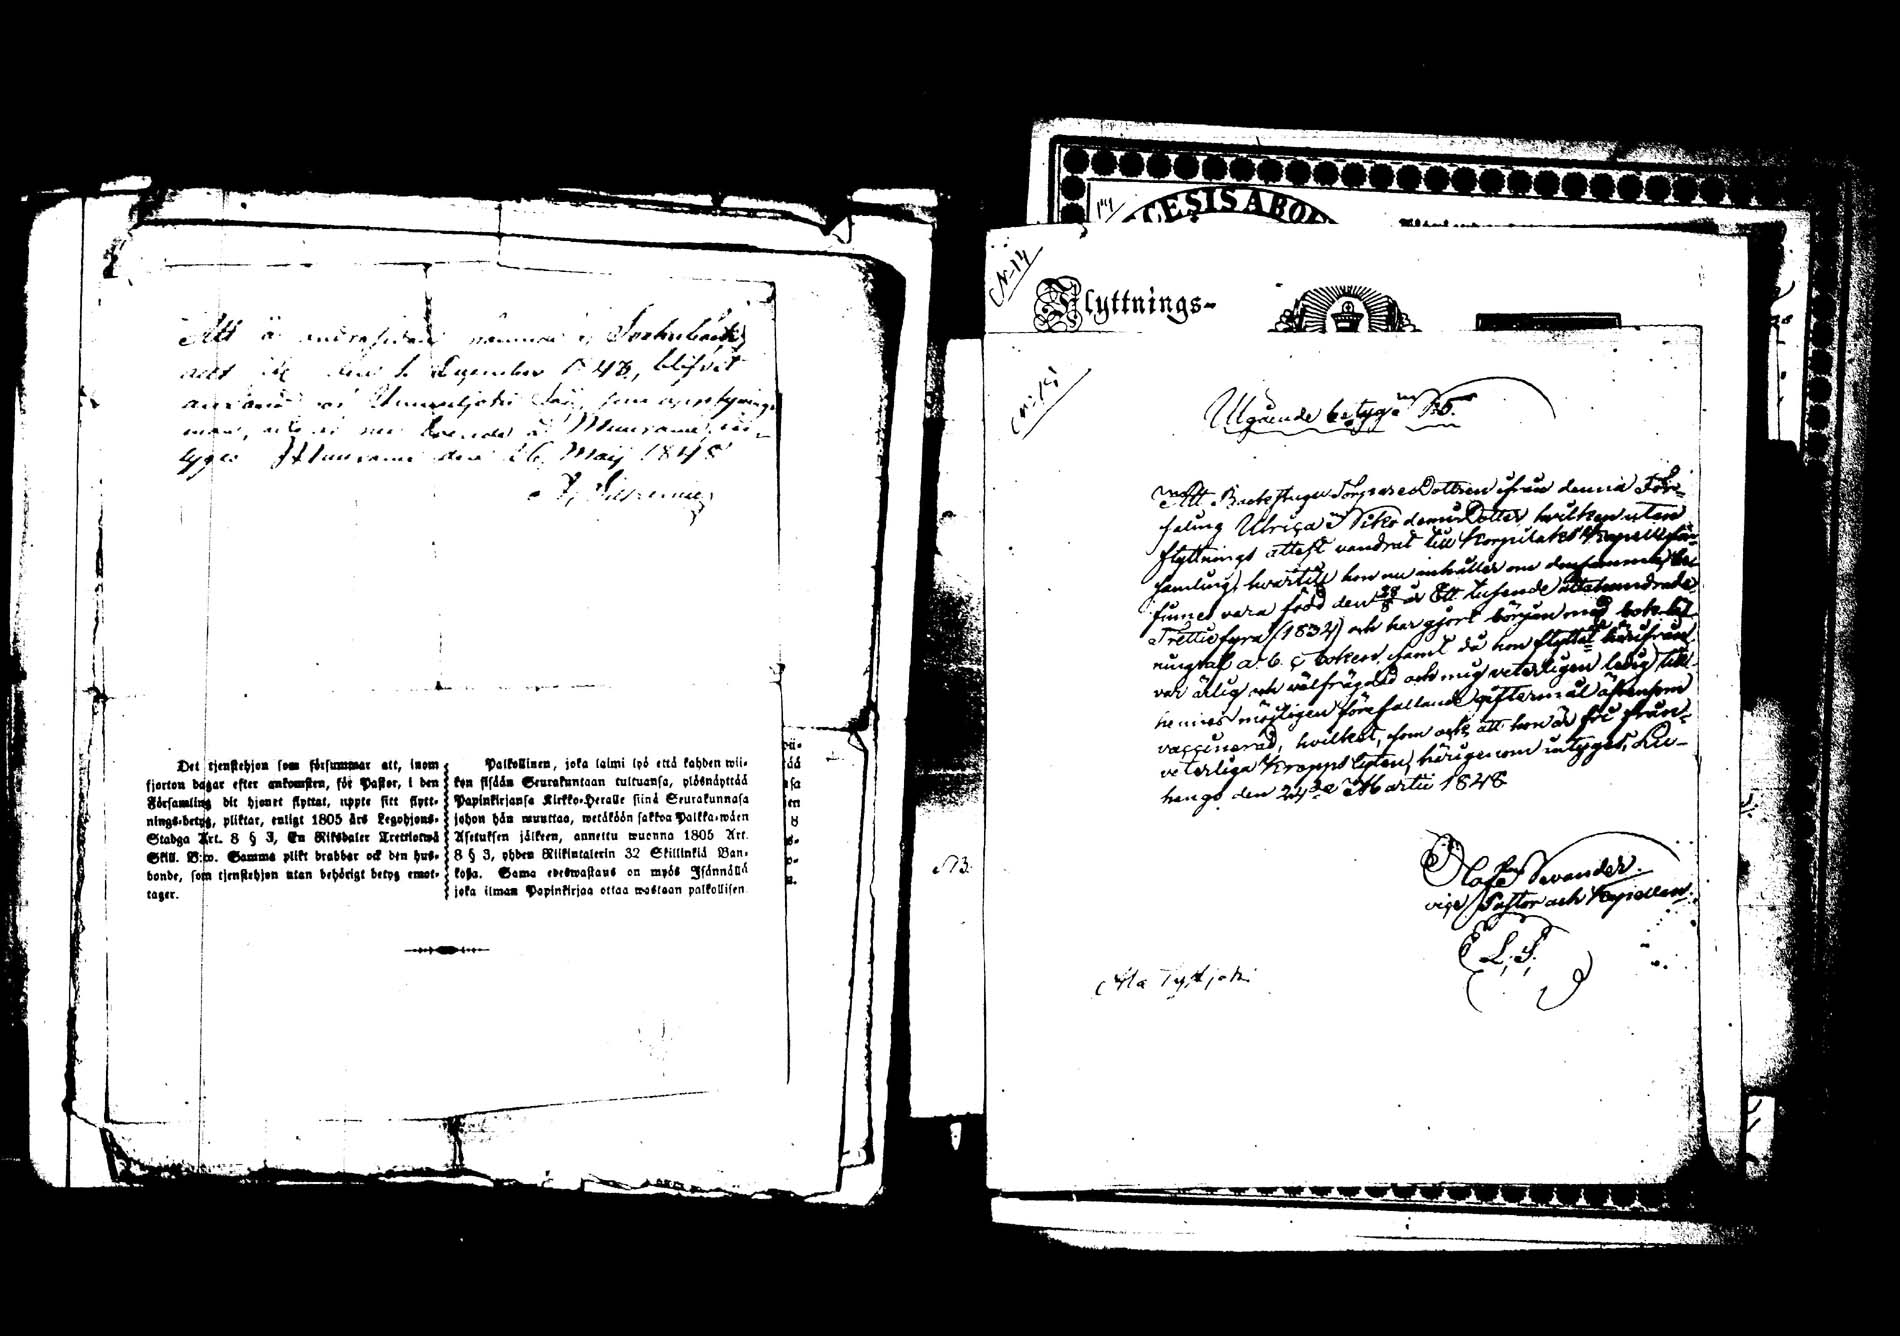 Att å andra sidan nämnde
att den 1 December 1843, blifvit
man, boende å Muurame, in-
tygas Muurame den 26 Maij 1848
Det tjenstehjon som försummar att, inom
fjorton dagar efter ankomsten, för Pastor, i den
Församling dit hjonet flyttat, uppte sitt flytt-
nings-betyg, pliktar, enligt 1805 års Legohjons-
Stadga Art. 8 § 3, En Riksdaler Trettiotwå
Skill. B:co. Samma plikt drabbar ock den hus-
bonde, som tjenstehjon utan behörigt betyg emot-
tager.
Palkollinen, joka laimi lyö että kahden wii-
kon sisään Seurakuntaan tultuansa, ylösnäyttää
Papinkirjansa Kirkko-Herralle siinä Seurakunnassa
johon hän muuttaa, wetäköön sakkoa Palkka-wäen
Asetuksen jälkeen, annettu wuonna 1805 Art.
8 § 3, yhden Riikintalerin 32 Skillinkiä Ban-
kossa. Sama edeswastaus on myös Isännällä
joka ilman Papinkirjaa ottaa wastaan palkollisen.
CESIS ABOE
N 14
Flyttnings-
Utgående betyg N:o 5.
Att Backstugu Torpare Dottren ifrån denna För-
samling Ulrica Nikodemi Dotter, hvilken utan
flyttnings attest vandrat till Korpilaks Kapell för-
samling, hvartill hon nu anhåller om densamma, be-
finnes vara född den 28/8 år Ett tusende åttahundrade
Trettiofyra (1834) och har gjort början med bokläs-
ning af a. b. c boken, samt då hon flyttat härifrån
var ärlig och välfrägdad och mig veterligen ledig till
hennes möjligen förefallande giftermål äfvensom
vaccinerad, hvilket, som ock att hon är fri från
veterliga kroppslyten, härigenom intygas, Lu-
hango den 24de Martii 1848
Olof Sevander.
vice Pastor och Kapellan.
L. S.
N 3.
Ala Tyttjoki